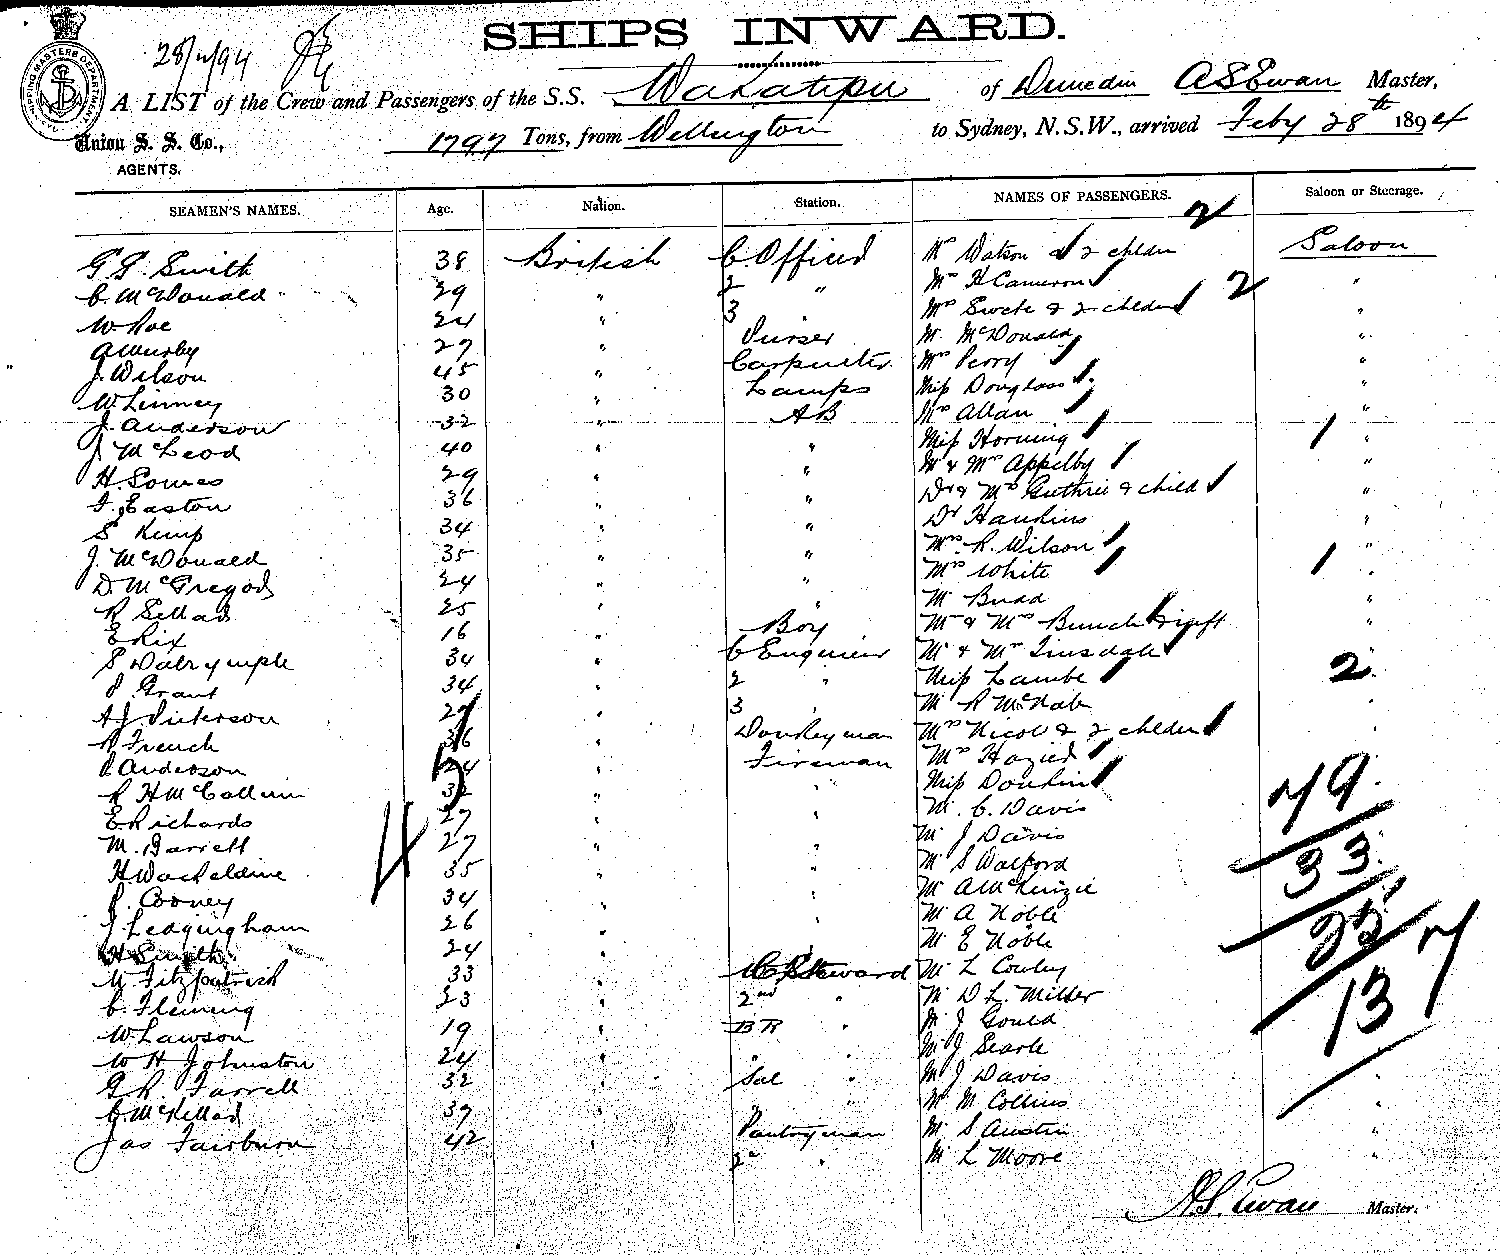 SHIPS INWARD.
28/2/94
SHIPPING MASTERS DEPARTMENT
A LIST of the Crew and Passengers of the S.S. Wakatipu of Dunedin A S Ewan Master,
Union S. S. Co., AGENTS.
1797 Tons, from Wellington to Sydney, N.S.W., arrived Feby 28th 1894
SEAMEN'S NAMES. Age. Nation. Station. NAMES OF PASSENGERS. 2 Saloon or Steerage.
38 British C. Officer Mrs Watson & 2 childen Saloon
C. McDonald 29 " 2 " Mrs H Cameron 2 "
W. Roe 24 " 3 Mrs Swete & 2 childen "
27 " Purser Mr McDonald "
J. Wilson 45 " Carpenter Mrs Perry "
W Linney 30 " Lamps Miss Douglass "
J. Anderson 32 " AB Mrs Allan "
J McLeod 40 " " Miss Horning 1 "
H. Somes 29 " " Mr & Mrs Appelby "
F. Easton 36 " " Dr & Mrs Guthrie & child "
S Kemp 34 " " Dr Hawkins "
J. McDonald 35 " " Mrs R. Wilson "
D. McGregor 24 " " Mrs White 1 "
R Sellar 25 " " Mr Budd "
E Rix 16 " Boy Mr & Mrs Bunch "
S Dalrymple 34 " C Engineer Mr & Mrs Tinsdale
P. Grant 34 " 2 " Miss Lambe 2 "
A J. Dickerson 27 " 3 " Mr R McNab "
R French 36 " Donkeyman Mrs Nicol & 2 childen "
P Anderson 24 " Fireman Mrs Hozied
R H McCallum 32 " " Miss Donkin
E Richards 27 " " Mr C. Davis 49
M. Barrett 27 " " Mr J Davis
H Wackeldine 35 " " Mr S Walford 33
P. Cooney 34 " " Mr A McKenzie
J Leagingham 26 " " Mr A Noble 25
H Smith 24 " " Mr E Noble
M Fitzpatrick 33 " C Steward Mr L Cowley 7
C. Fleming 23 " 2nd " Mr D L. Miller
W Lawson 19 " BR " Mr J Gould 13
W H Johnston 24 " " " Mr J Searle
G R. Farrell 32 " Sal " Mr J Davis "
C. McKellar 39 " " " Mr M Collins "
Jas Fairburn 42 " Pantryman Mr S Austin "
2nd " Mr L Moore "
A. S. Ewan Master.